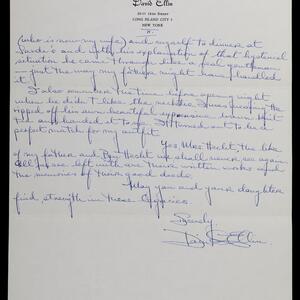 David Ellin
LONG ISLAND CITY 1
NEW YORK
(who is now my wife) and myself to dinner at
Sardi's and with his explanation of that hysterical
situation he came through like a real person
— just the way my father might have handled
it.
I also remember the time before opening night
when he didn't like the necktie I was wearing. He
ripped off his own beautiful expensive brown knit
and handed it to me. It turned out to be a
perfect match for my outfit.
Yes Mrs Hecht, the like
of my father and Ben Hecht we shall never see again
All we're left with are their written works and
the memories of their good deeds.
May you and your daughter
find strength in these legacies.
Sincerely
David Ellin